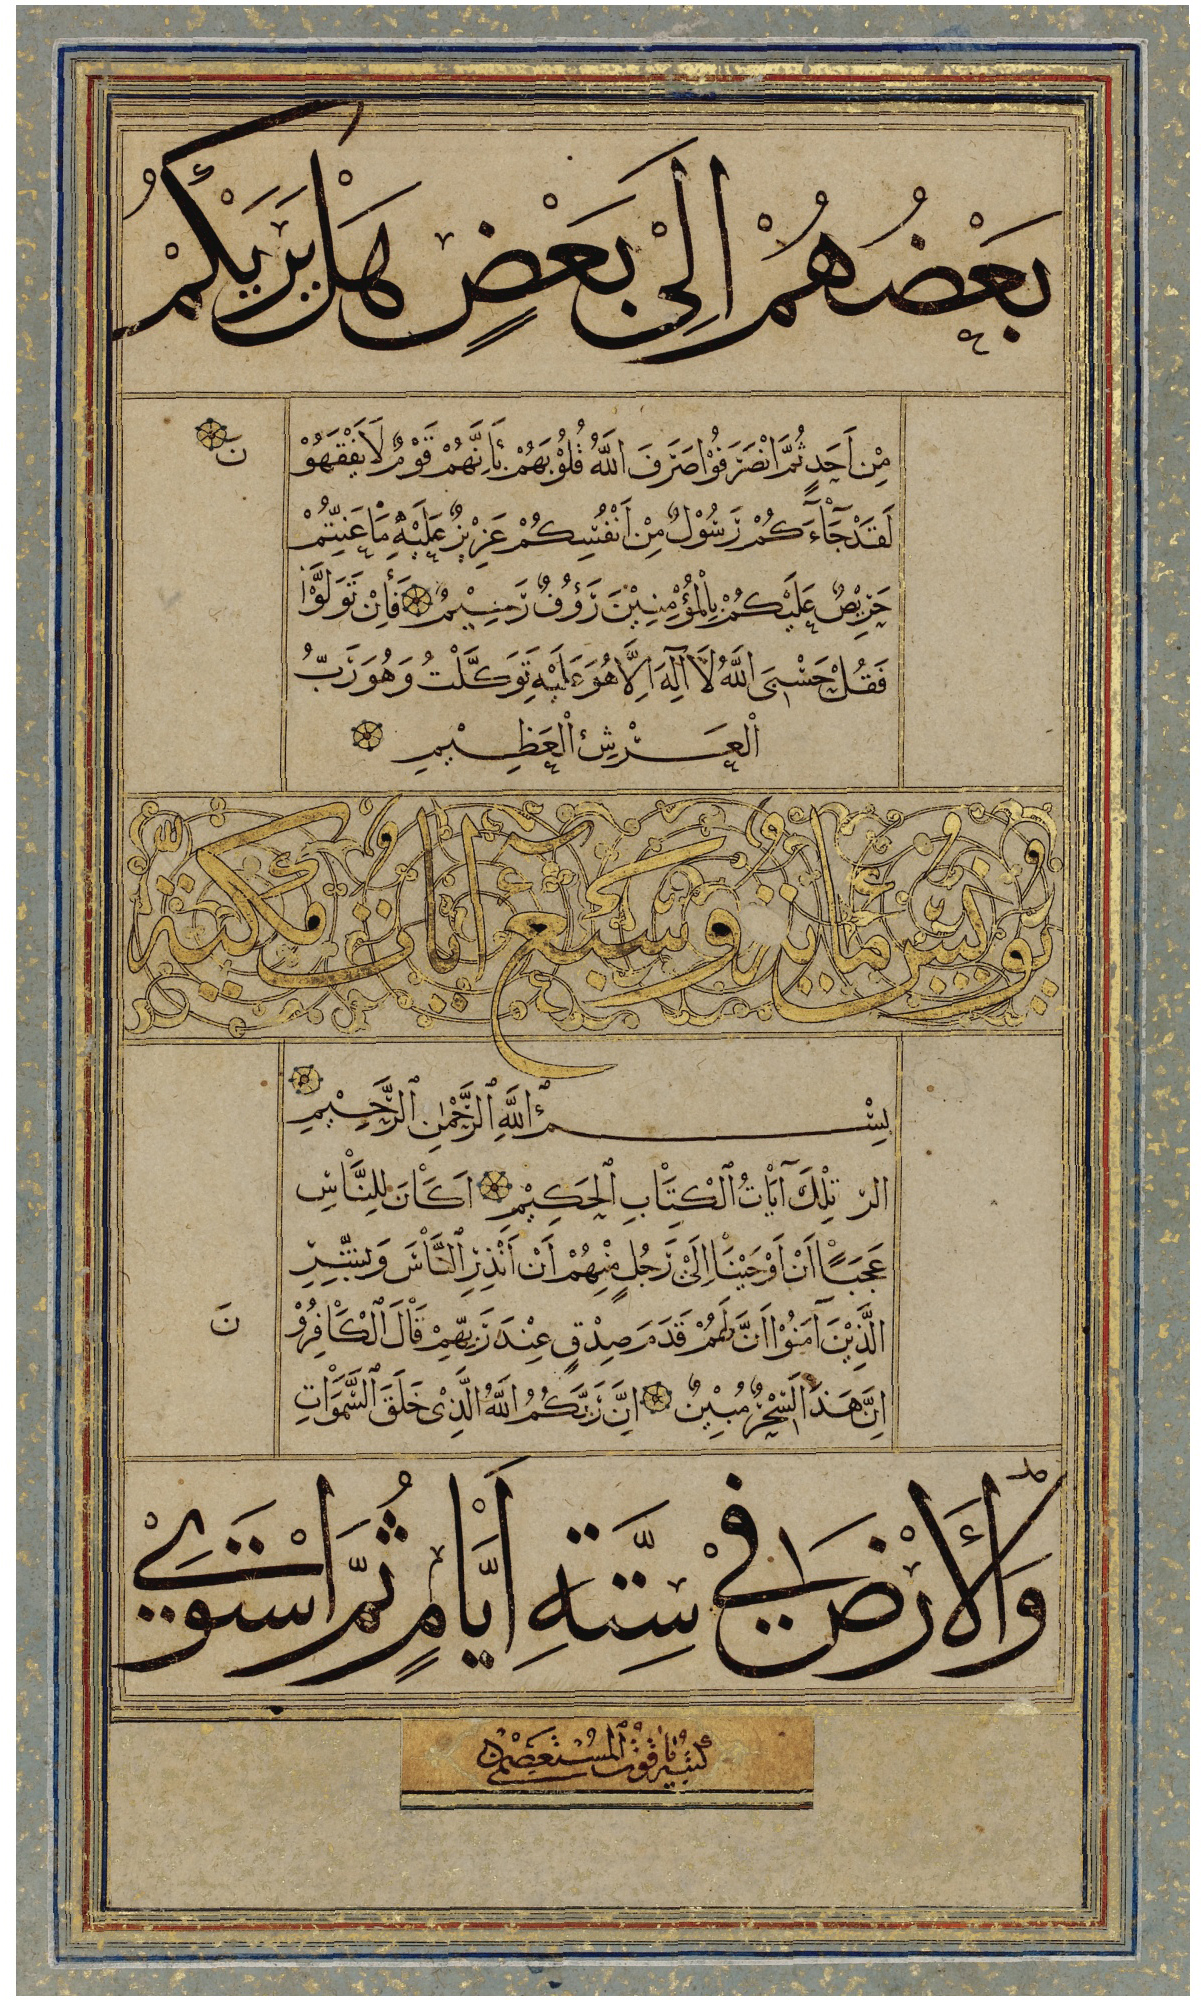 بَعْضُهُمْ اِلَىْ بَعْضٍ هَلْ يَرَيْكُمْ
مِنْ اَحَدٍ ثُمَّ انْصَرَفُوْا صَرَفَ اللَّهُ قُلُوْبَهُمْ بِاَنَّهُمْ قَوْمٌ لَا يَفْقَهُوْنَ
لَقَدْ جَآءَكُمْ رَسُوْلٌ مِنْ اَنْفُسِكُمْ عَزِيْزٌ عَلَيْهِ مَا عَنِتُّمْ
حَرِيْصٌ عَلَيْكُمْ بِالْمُؤْمِنِيْنَ رَؤُفٌ رَحِيْمٌ فَاِنْ تَوَلَّوْا
فَقُلْ حَسْبِىَ اللَّهُ لَا اِلٰهَ اِلَّا هُوَ عَلَيْهِ تَوَكَّلْتُ وَهُوَ رَبُّ
الْعَرْشِ الْعَظِيْمِ
يونس مأية وسبع ايات مكية
بِسْمِ اللَّهِ الرَّحْمٰنِ الرَّحِيْمِ
الر تِلْكَ آيَاتُ الْكِتَابِ الْحَكِيْمِ اَكَانَ لِلنَّاسِ
عَجَبًا اَنْ اَوْحَيْنَا اِلَىْ رَجُلٍ مِنْهُمْ اَنْ اَنْذِرِ النَّاسَ وَبَشِّرِ
الَّذِيْنَ آمَنُوْا اَنَّ لَهُمْ قَدَمَ صِدْقٍ عِنْدَ رَبِّهِمْ قَالَ الْكَافِرُوْنَ
اِنَّ هَذَا لَسِحْرٌ مُبِيْنٌ اِنَّ رَبَّكُمُ اللَّهُ الَّذِىْ خَلَقَ السَّمَوَاتِ
وَالْاَرْضَ فِىْ سِتَّةِ اَيَّامٍ ثُمَّ اسْتَوَىْ
كتبه ياقوت المستعصمي